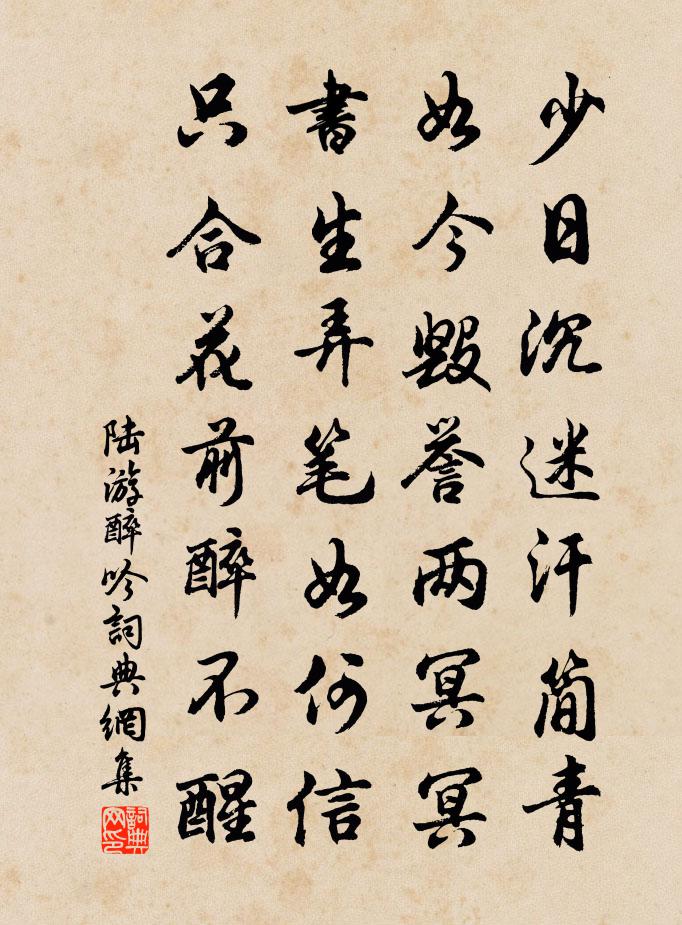 少日沉迷汗简青
如今毁誉两冥冥
書生弄笔如何信
只合花前醉不醒
陆游醉吟詞典網集
詞典网印